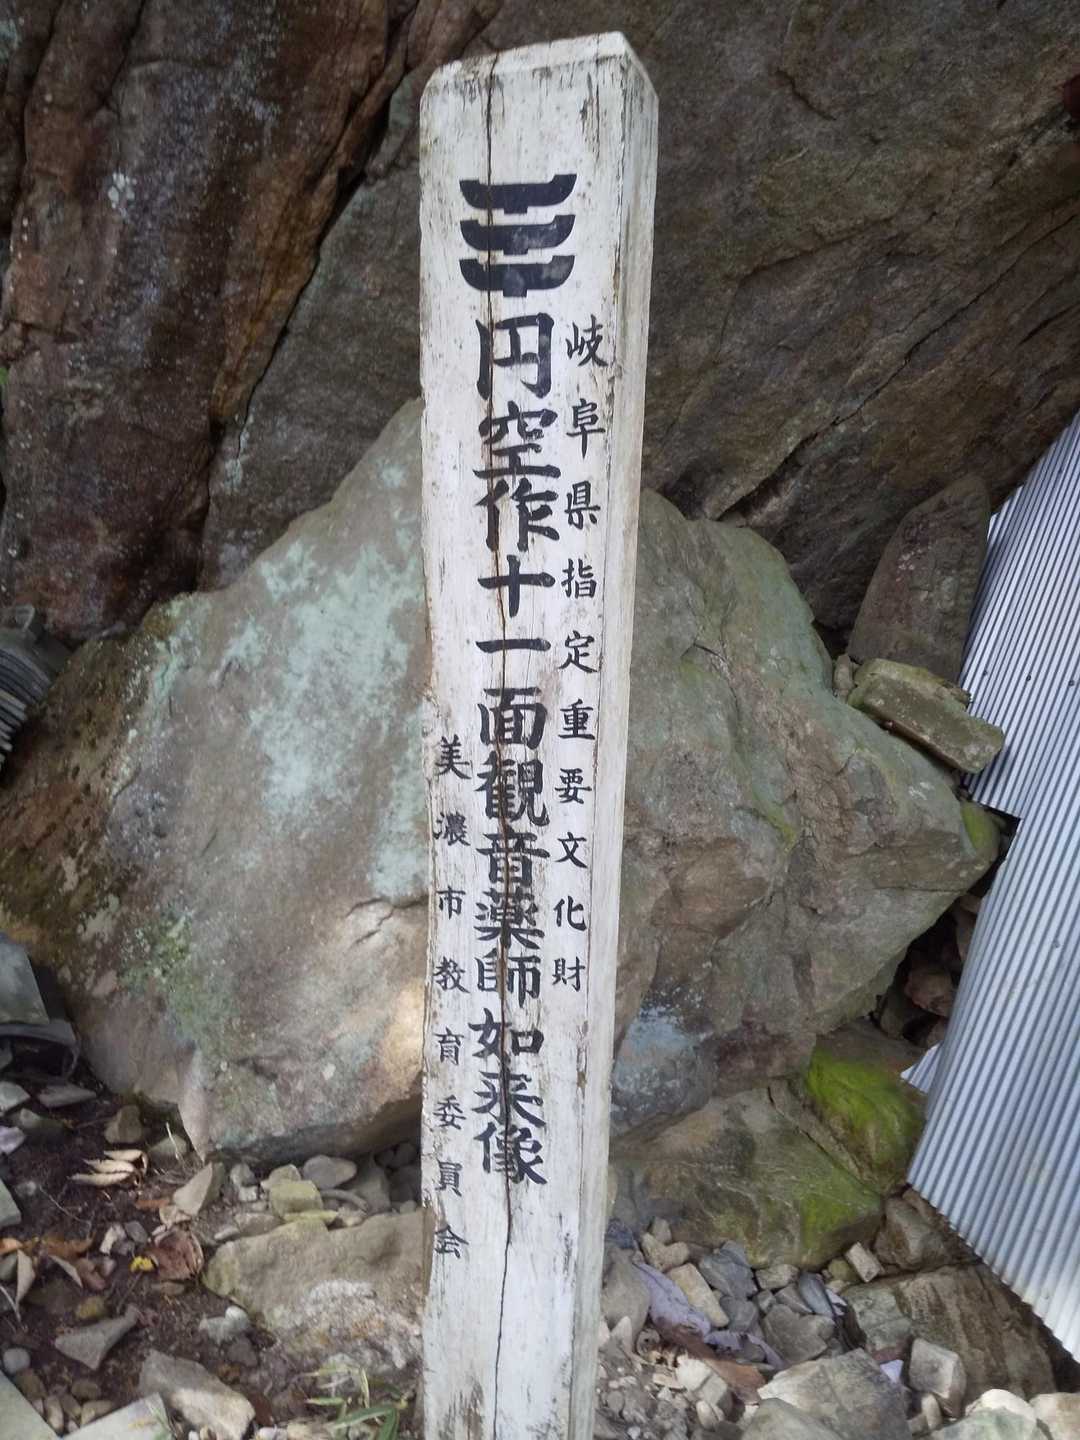 岐阜県指定重要文化財
円空作十一面観音薬師如来像
美濃市教育委員会